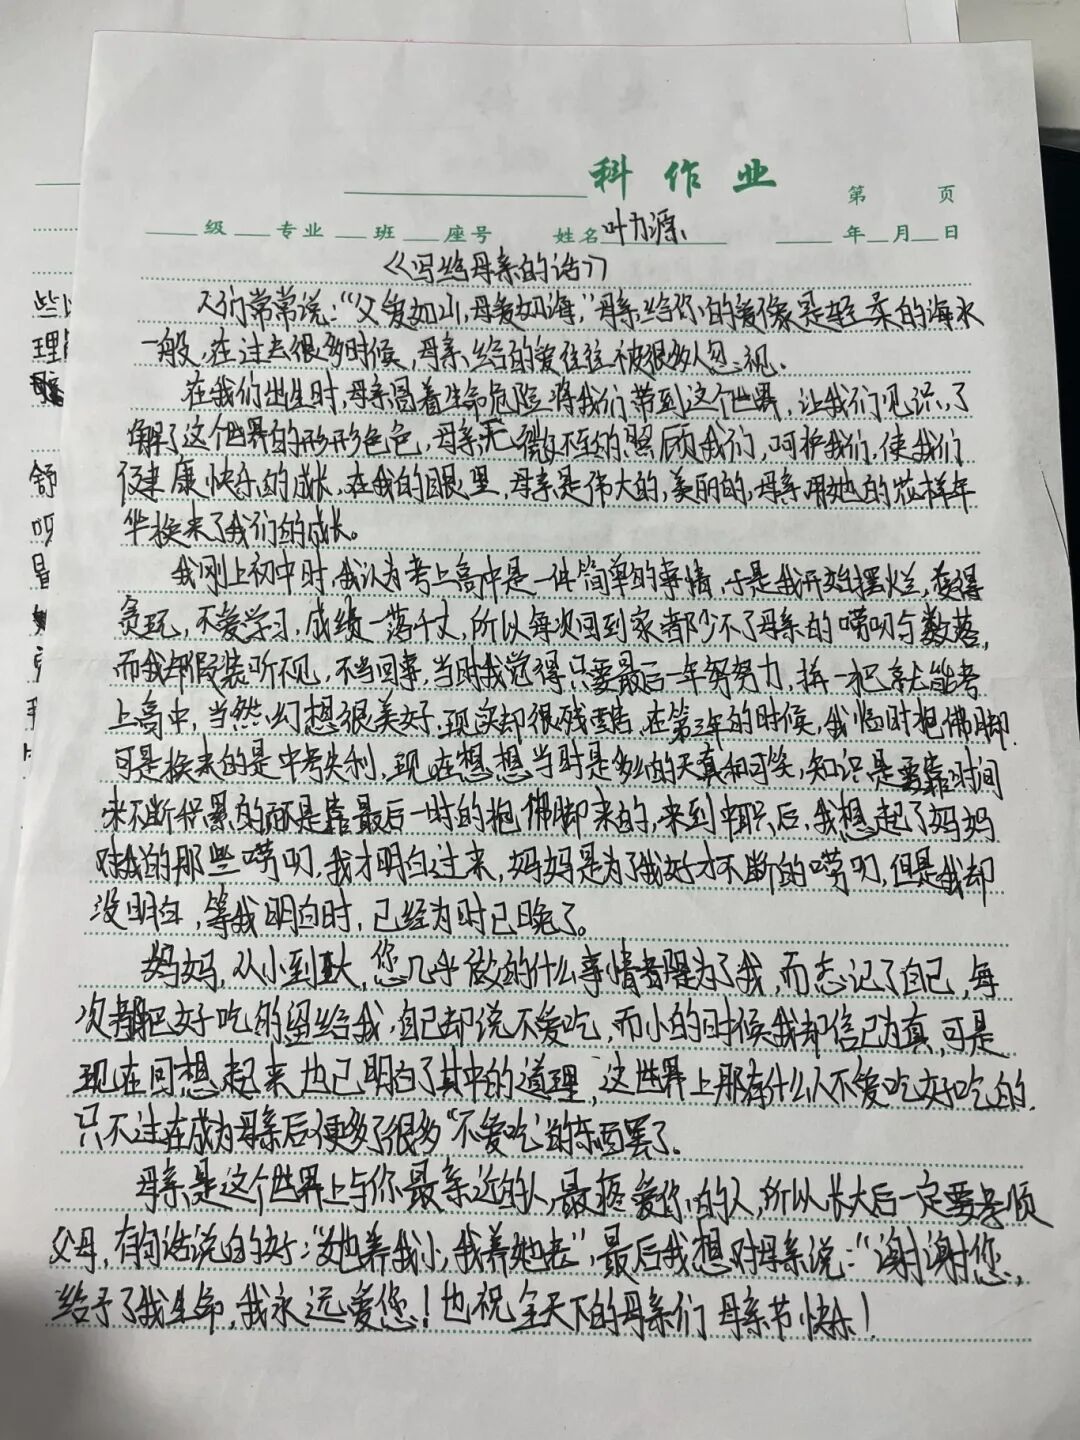 科作业
第 页
级 专业 班 座号 姓名 叶力源 年 月 日
《写给母亲的话》
人们常常说：“父爱如山，母爱如海，”母亲给你的爱像是轻柔的海水
一般，在过去很多时候，母亲给的爱往往被很多人忽视。
在我们出生时，母亲冒着生命危险将我们带到这个世界，让我们见识，了
解了这个世界的形形色色，母亲无微不至的照顾我们，呵护我们，使我们
健康快乐的成长，在我的眼里，母亲是伟大的，美丽的，母亲用她的花样年
华换来了我们的成长。
我刚上初中时，我认为考上高中是一件简单的事情，于是我开始摆烂，变得
贪玩，不爱学习，成绩一落千丈，所以每次回到家都少不了母亲的唠叨与数落，
而我却假装听不见，不当回事，当时我觉得只要最后一年努努力，拼一把就能考
上高中，当然幻想很美好，现实却很残酷，在第三年的时候，我临时抱佛脚，
可是换来的是中考失利，现在想想当时是多么的天真和可笑，知识是要靠时间
来不断积累的而不是靠最后一时的抱佛脚来的，来到中职后，我想起了妈妈
对我的那些唠叨，我才明白过来，妈妈是为了我好才不断的唠叨，但是我却
没明白，等我明白时，已经为时已晚了。
妈妈，从小到大，您几乎做的什么事情都是为了我，而忘记了自己，每
次都把好吃的留给我，自己却说不爱吃，而小的时候我却信已为真，可是
现在回想起来也已明白了其中的道理，这世界上那有什么人不爱吃好吃的，
只不过在成为母亲后便多了很多“不爱吃”的东西罢了。
母亲是这个世界上与你最亲近的人，最疼爱你的人，所以长大后一定要孝顺
父母，有句话说的好：“她养我小，我养她老”，最后我想对母亲说：“谢谢您，
给予了我生命，我永远爱您！也祝全天下的母亲们母亲节快乐！
些
理
舒
叨
是